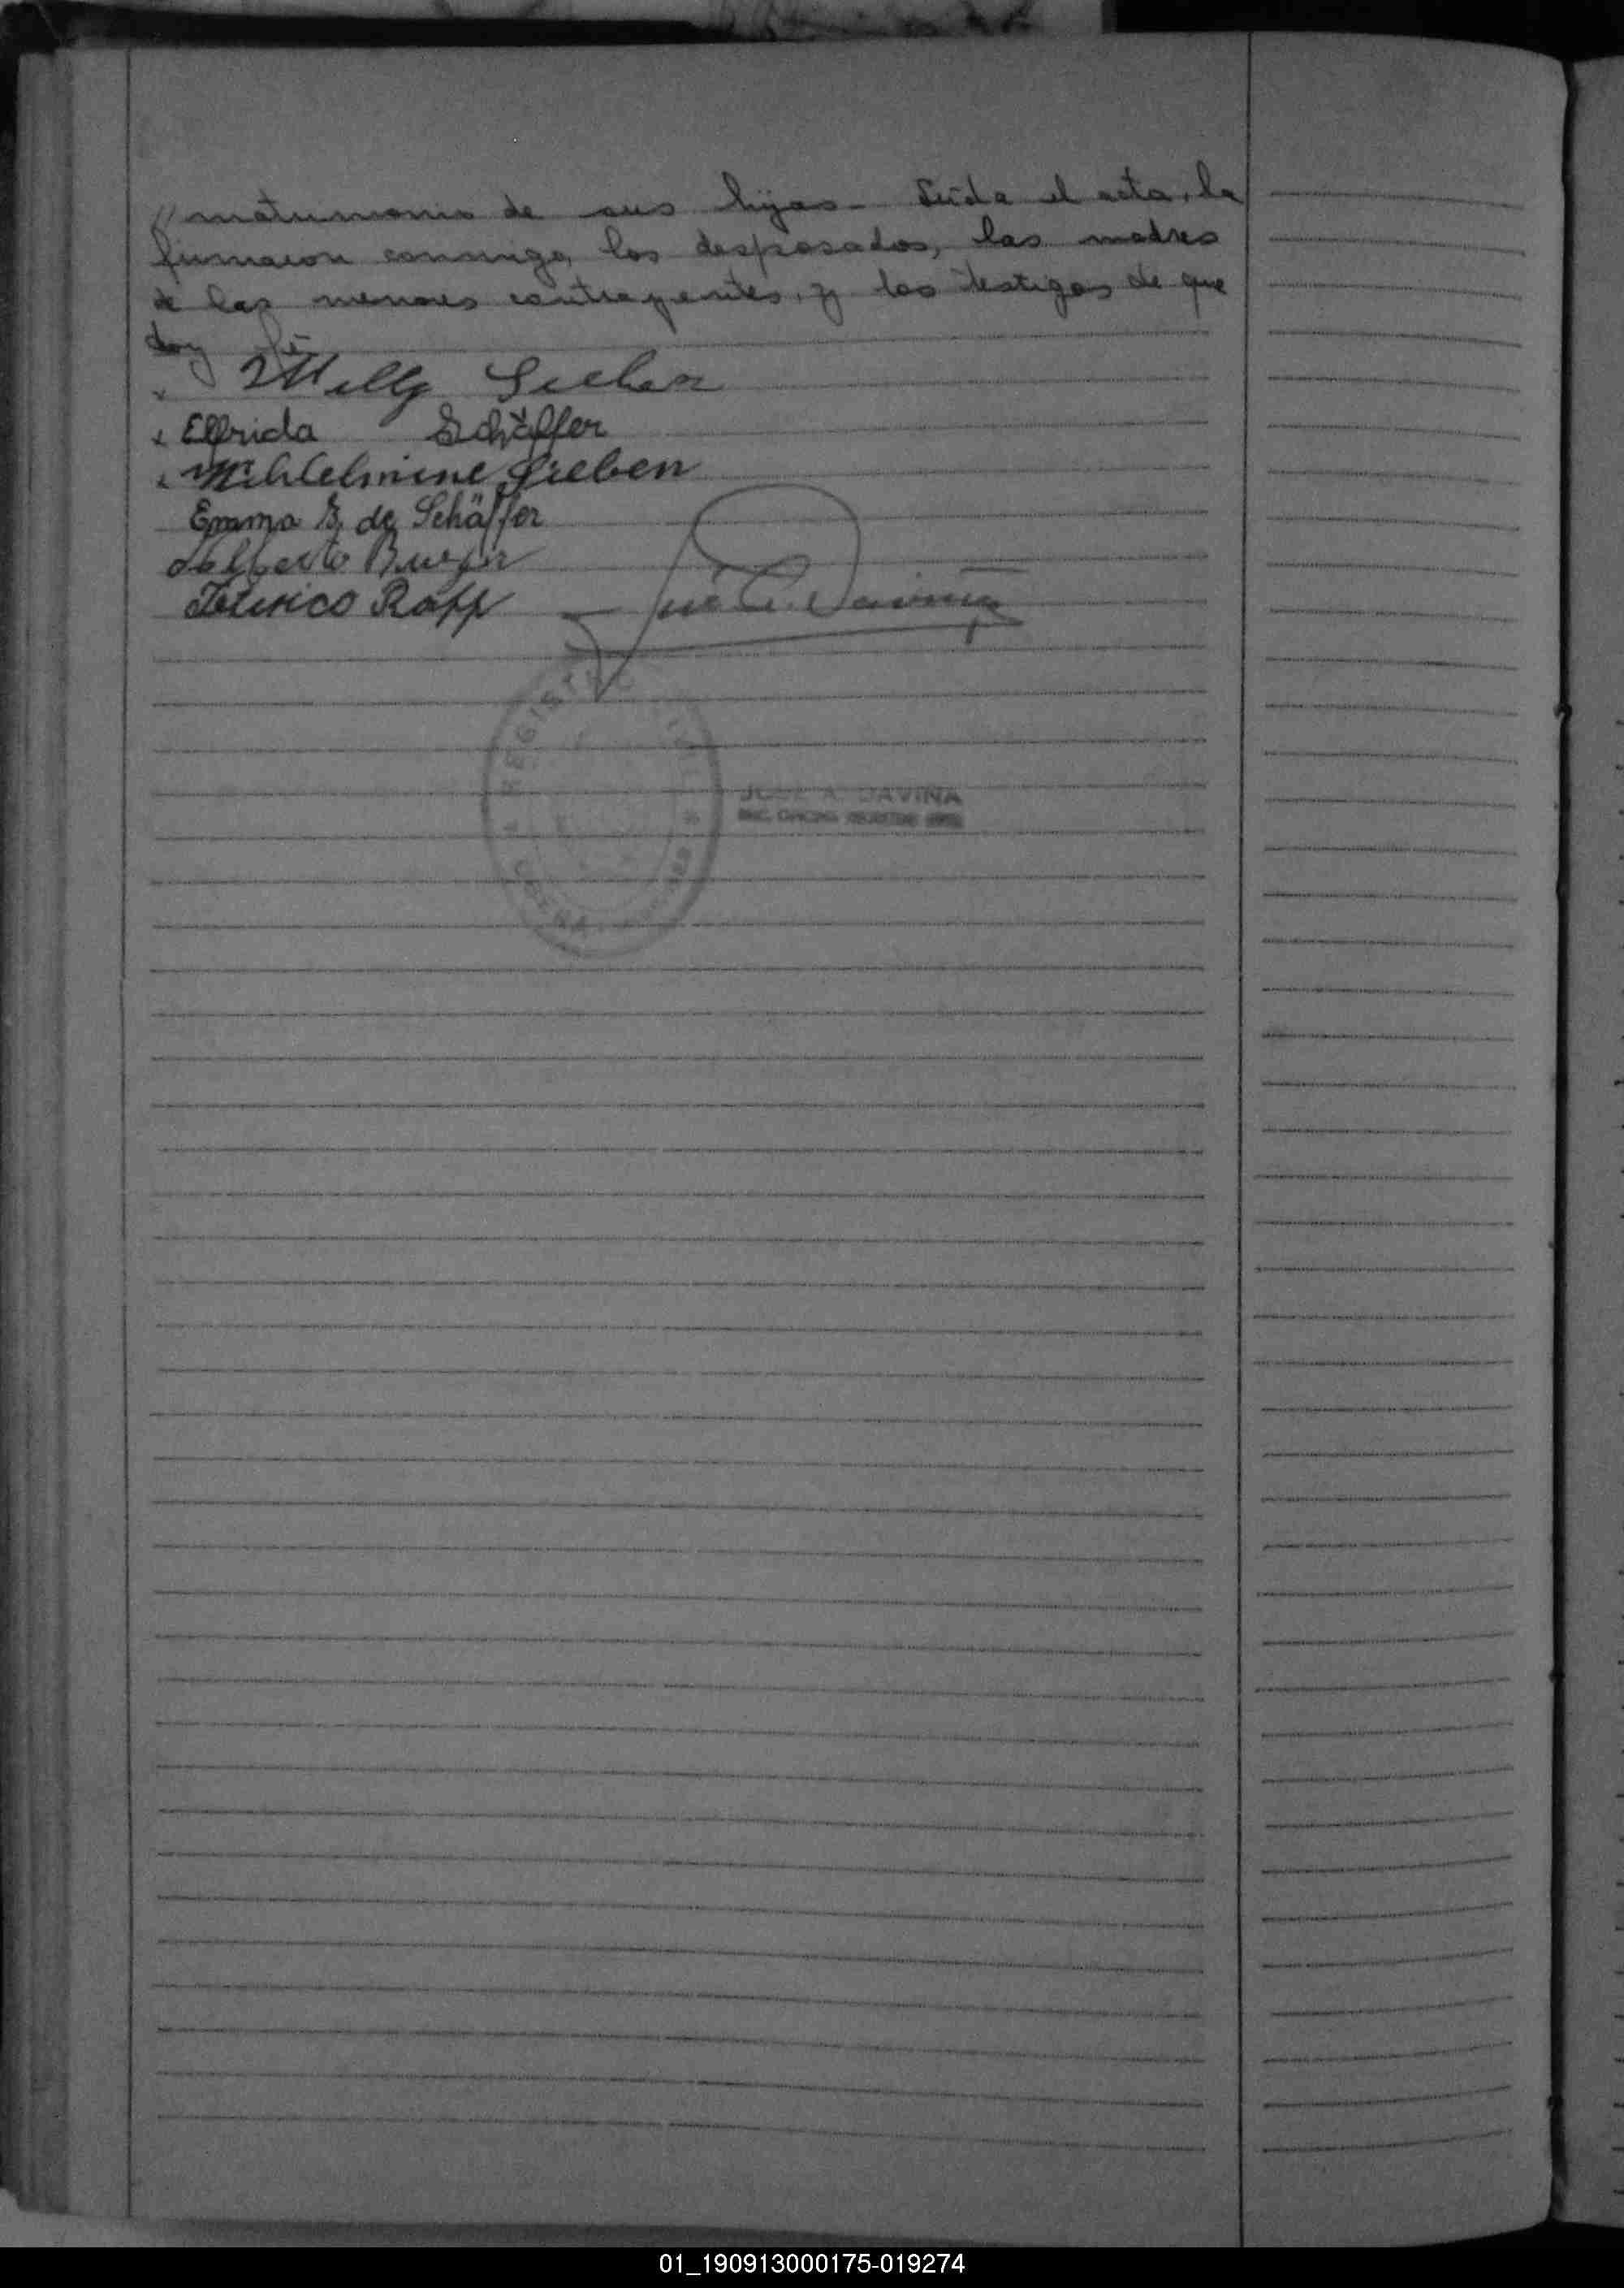 // matrimonio de sus hijas - Leida el acta, la
firmaron conmigo, los desposados, las madres
de las menores contrayentes, y los testigos de que
doy fé
x Willy Sieben
x Elfrida Schäffer
x Wihlelmine Sieben
Emma de Schäffer
Federico Rapp
José A. Daviña
REGISTRO CIVIL
JOSE A. DAVIÑA
01_190913000175-019274